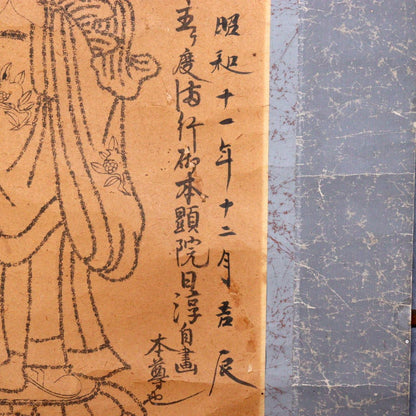 昭和十一年十二月吉辰
五ヶ度満行御本顕院日淳自畫
本尊也